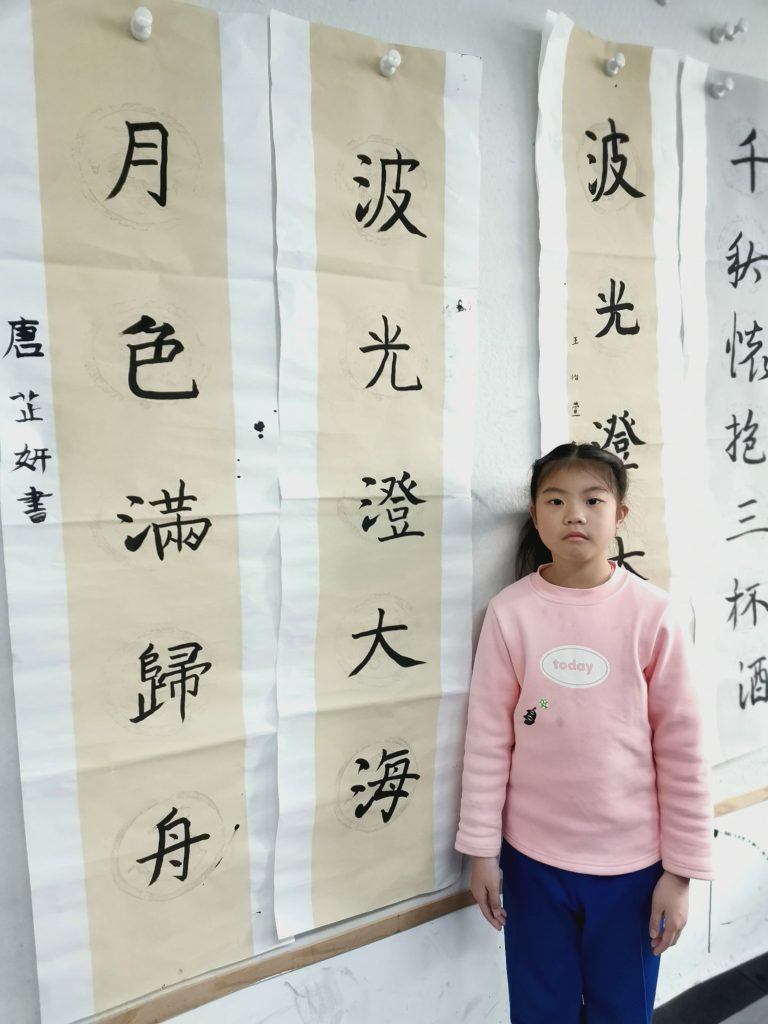 千秋懷抱三杯酒
波光澄大
波光澄大海
月色滿歸舟
唐芷妍書
today